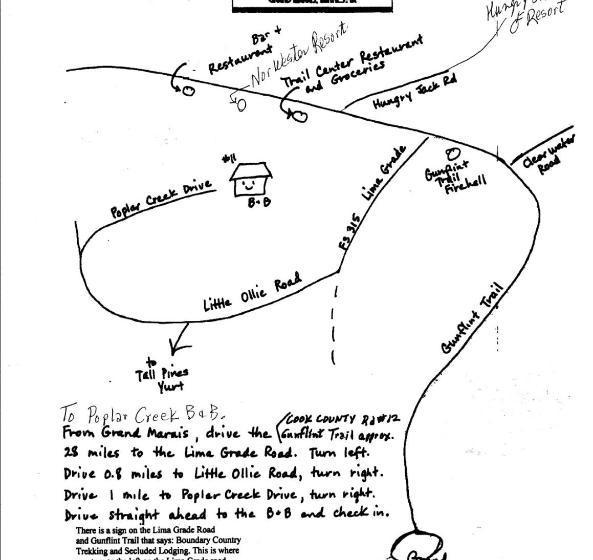 Hungry
of Resort
Bar +
Restaurant
Nor'wester Resort.
Trail Center Restaurant
and Groceries
Hungry Jack Rd
Clearwater
Road
Gunflint
Trail
Firehall
FS 315 Lima Grade
#11
B+B
Poplar Creek Drive
Little Ollie Road
Gunflint Trail
to
Tall Pines
Yurt
To Poplar Creek B&B.
COOK COUNTY Rd #12
From Grand Marais, drive the Gunflint Trail approx.
28 miles to the Lima Grade Road. Turn left.
Drive 0.8 miles to Little Ollie Road, turn right.
Drive 1 mile to Poplar Creek Drive, turn right.
Drive straight ahead to the B+B and check in.
There is a sign on the Lima Grade Road
and Gunflint Trail that says: Boundary Country
Trekking and Secluded Lodging. This is where